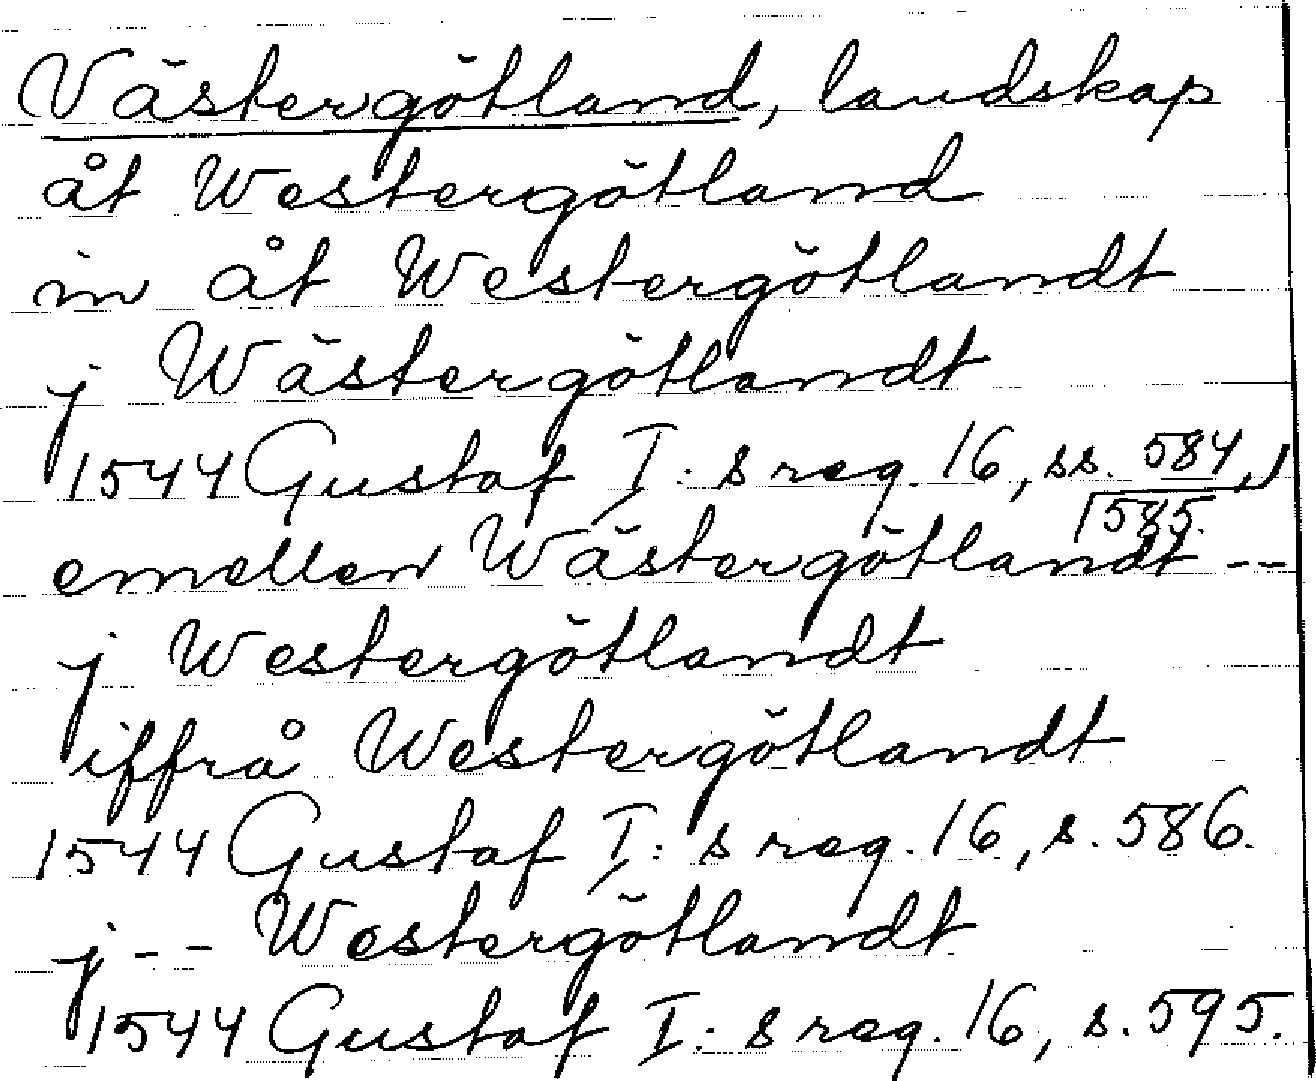 Västergötland, landskap
åt Westergötland
in åt Westergötlandt
j Wästergötlandt
1544 Gustaf I:s reg. 16, ss. 584,
585.
emellen Wästergötlandt --
j Westergötlandt
iffrå Westergötlandt
1544 Gustaf I:s reg. 16, s. 586.
j -- Westergötlandt
1544 Gustaf I:s reg. 16, s. 595.